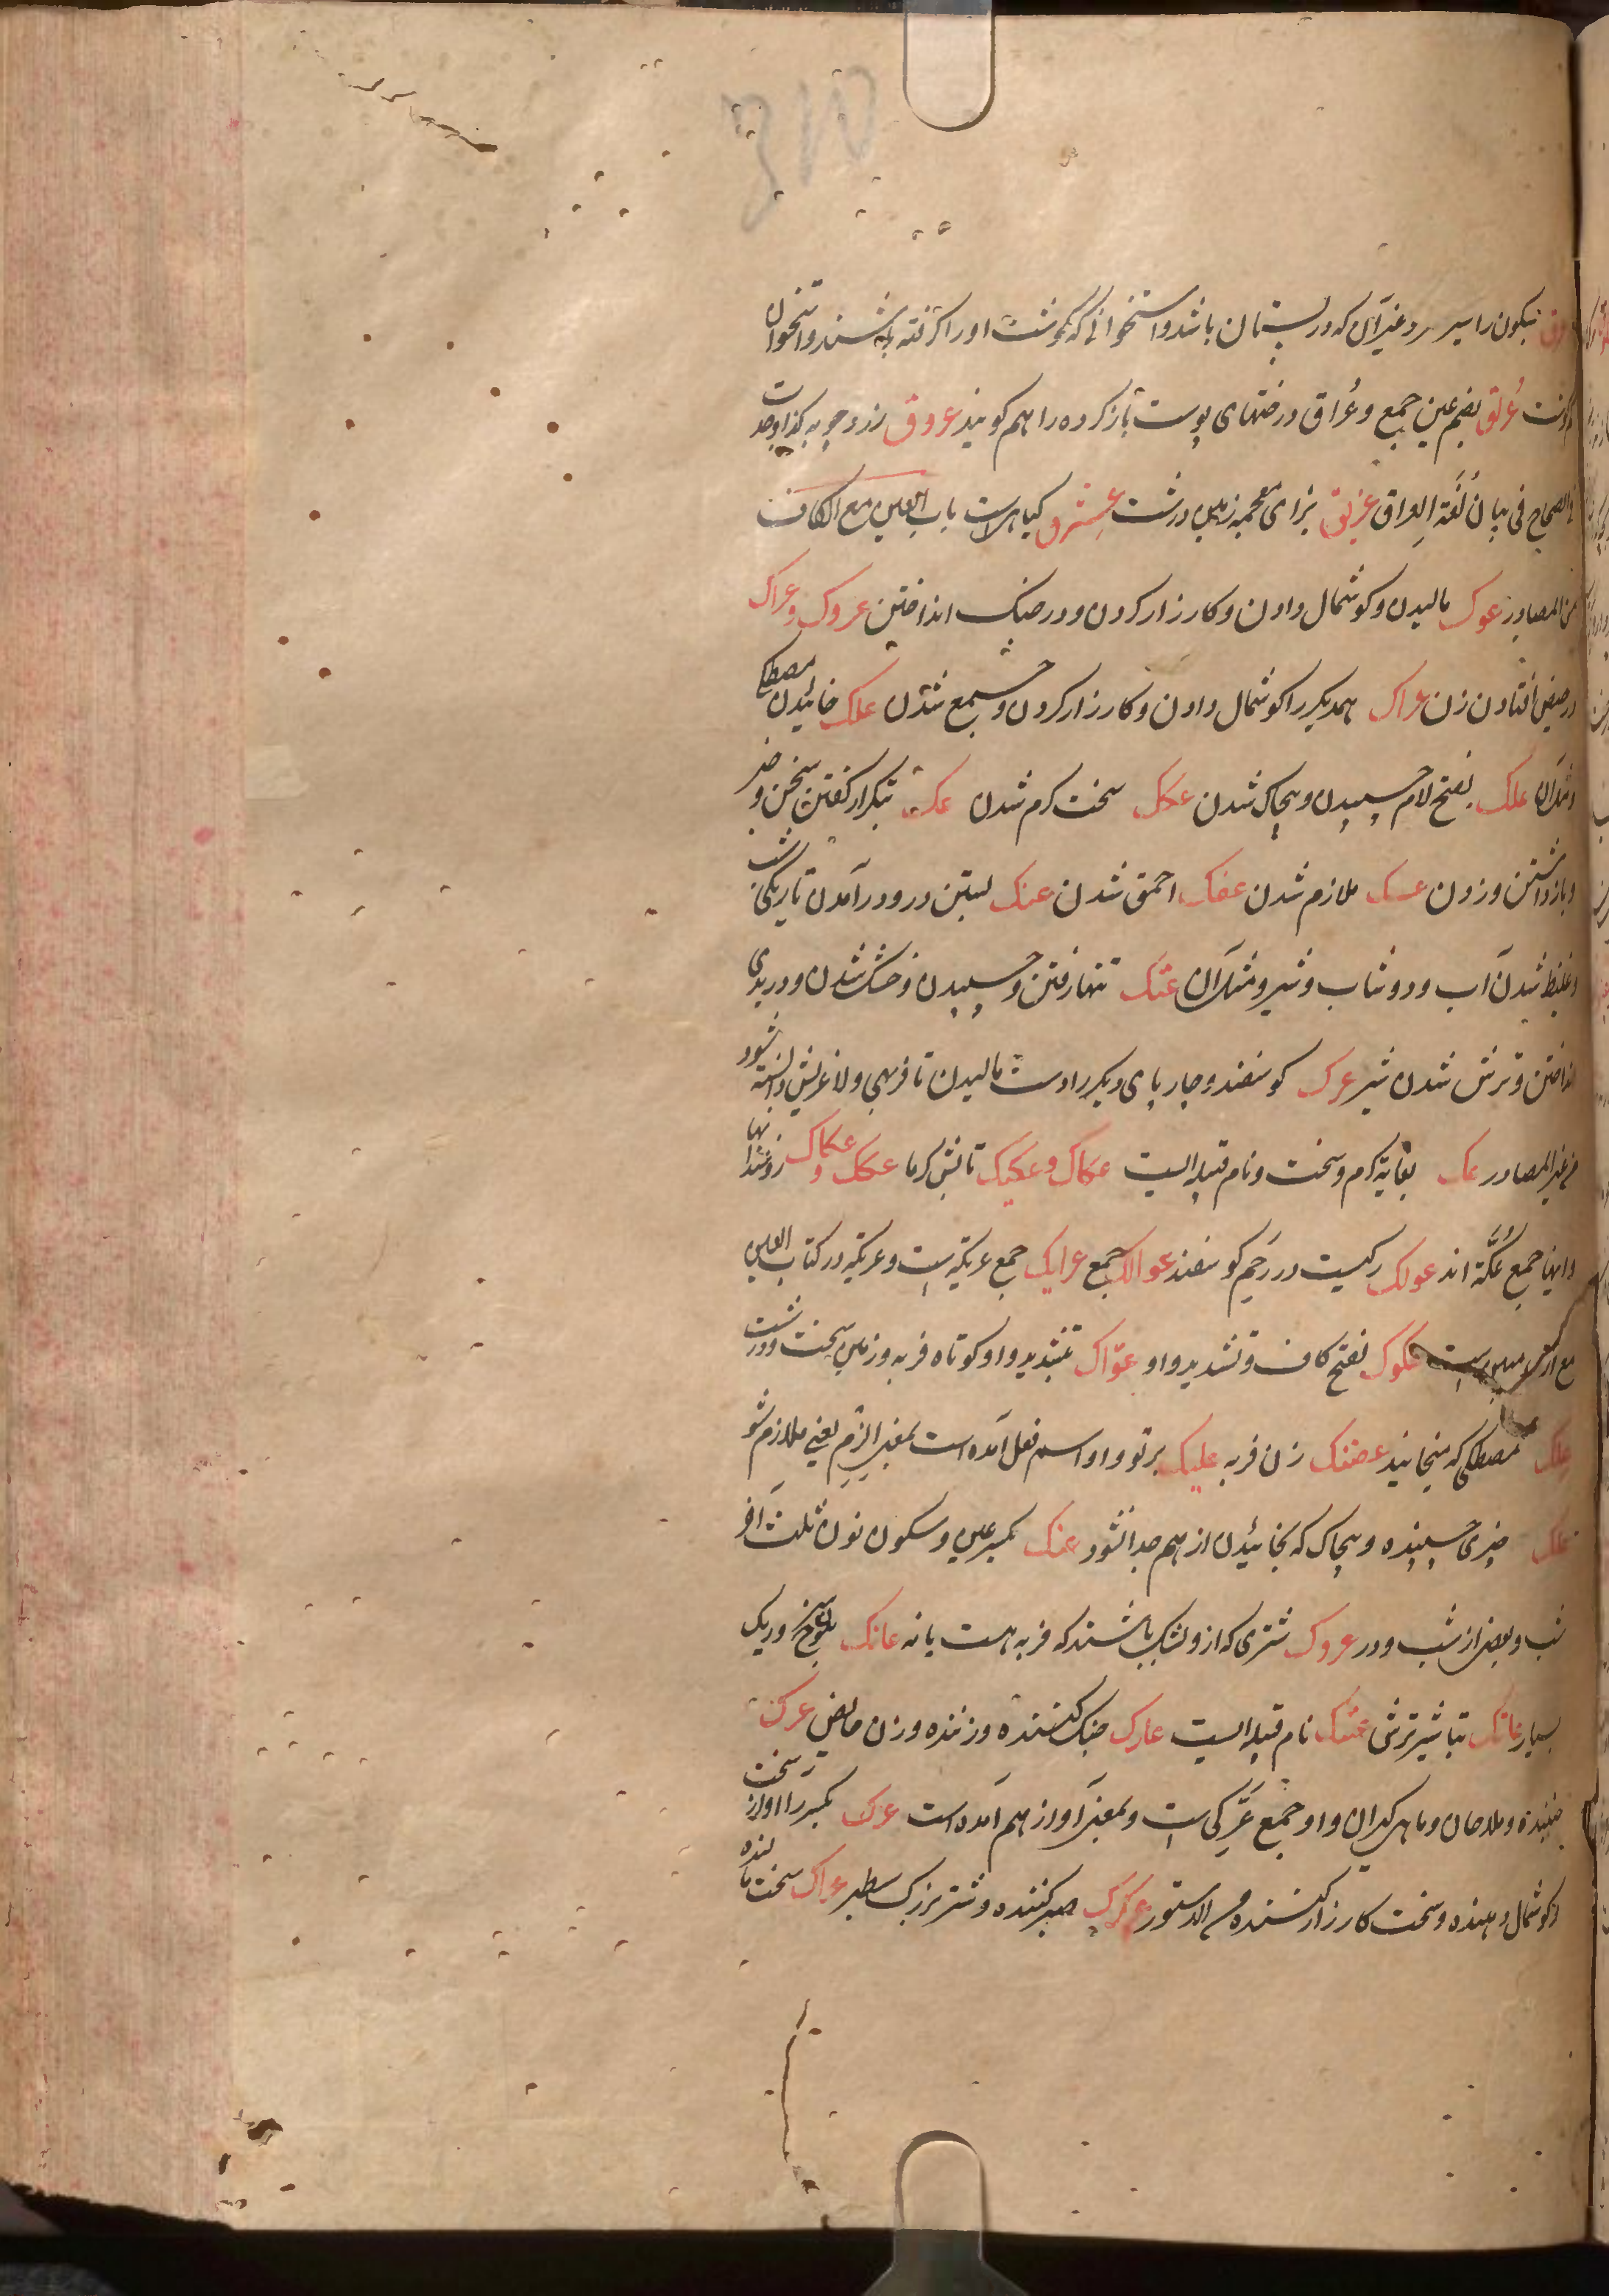 عرق بسکون را سیر و غیر آن که در پستان باشد و استخوانی که گوشت او را گرفته باشند و استخوان
گوشت عُراق بضم عین جمع و عُراق درختهای پوست باز کرده را هم کویند عروق زردچوبه کذا وجدت
فی الصحاح فی بیان لغة العراق عزیق بزای معجمه زمین درشت عشرق کیاهی است باب العین مع الکاف
من المصادر عرک مالیدن و کوشمال دادن و کارزار کردن و در جنک انداختن عروک و عراک
در حیض افتادن زن عراک همدیکر را کوشمال دادن و کارزار کردن و جمع شدن علک خائیدن مصطکی
و مثل آن علک بفتح لام چسپیدن و پیچاک شدن عکک سخت کرم شدن عک بتکرار کفتن سخن و
و باز داشتن و زدن عسک ملازم شدن عفک احمق شدن عنک بستن در و در آمدن تاریکی شب
و غلیظ شدن آب و دوشاب و شیر و مثل آن عتک تنها رفتن و چسپیدن و خشک شدن و در بدی
انداختن و ترش شدن شیر عرک کوسفند و چارپای دیکر را دست مالیدن تا فربهی و لاغریش دانسته شود
من غیر المصادر عک بغایة کرم و سخت و نام قبیله ایست عکاک و عکیک تابش کرما عکک و عکاک روغندانها
و اینها جمع عُکّة اند عولک رکیست در رحم کوسفند عوالک جمع عرایک جمع عریکة است و عریکة در کتاب العین
مع عکوک بفتح کاف و تشدید واو عوّاک بتشدید واو کوتاه فربه و زمین سخت و درشت
علک مصطکی که میخایند عضنک زن فربه علیک بر تو و او اسم فعل آمده است بمعنی الزم یعنی ملازم شو
علک چیزی چسپنده و پیچاک که بخائیدن از هم جدا نشود عنک بکسر عین و سکون نون ثلث آخر
شب و بعضی از شب و در عروک شتری که ازو بشک باشند که فربه است یا نه عانک سرخ و ریک
بسیار عاتک شیر ترش عتک نام قبیله ایست عارک جنک کننده و زننده و زن حایض عرک
جنبنده و ملاحان و ماهی کیران و او جمع عَرَکی است و بمعنی آواز هم آمده است عرک بکسر را آواز سخت
و کوشمال دهنده و سخت کارزار کننده من الدستور عرکرک صبر کننده و شتر بزرک سطبر عراک سخت مالنده